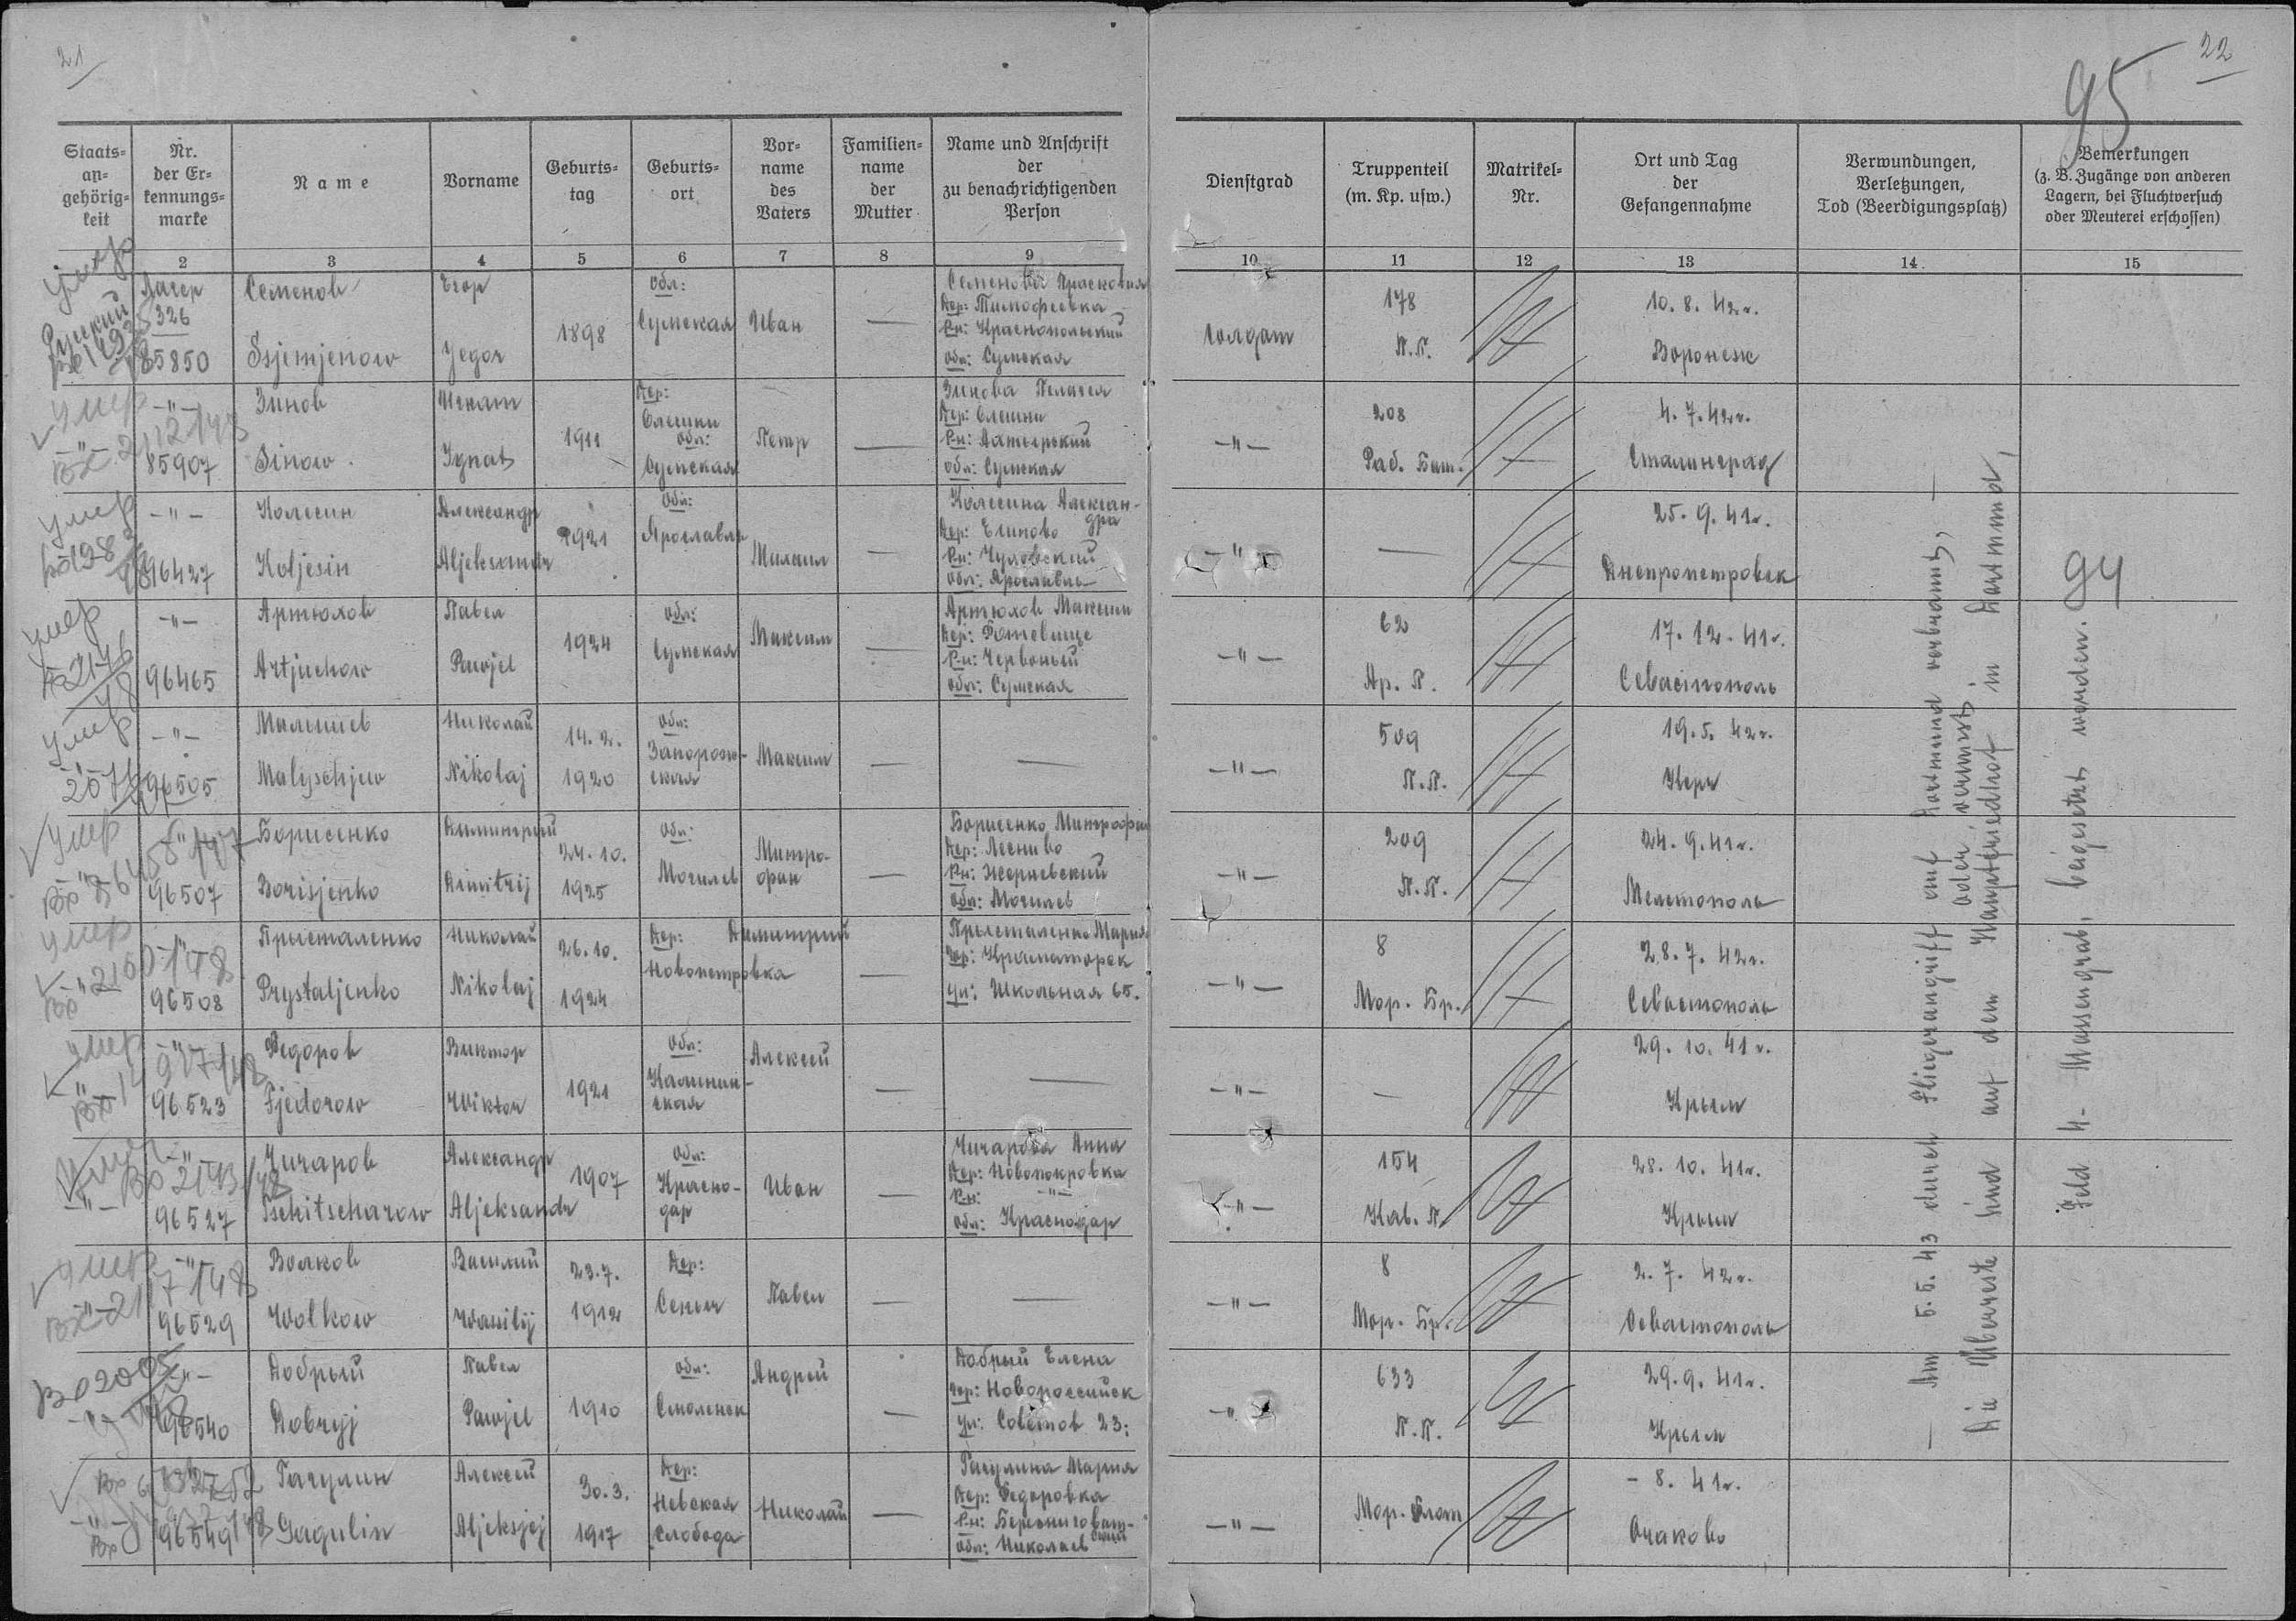 21
22
95
Staats=
an=
gehörig=
keit
Nr.
der Er=
kennungs=
marke
Name
Vorname
Geburts=
tag
Geburts=
ort
Vor=
name
des
Vaters
Familien=
name
der
Mutter
Name und Anschrift
der
zu benachrichtigenden
Person
Dienstgrad
Truppenteil
(m. Kp. usw.)
Matrikel=
Nr.
Ort und Tag
der
Gefangennahme
Verwundungen,
Verletzungen,
Tod (Beerdigungsplatz)
Bemerkungen
(z. B. Zugänge von anderen
Lagern, bei Fluchtversuch
oder Meuterei erschossen)
2 3 4 5 6 7 8 9 10 11 12 13 14 15
умер
Руский
Лагер
326
85850
Семенов
Ssjemjenow
Егор
Jegor
1898
Обл:
Сумская
Иван
—
Семенова Прасковия
Дер: Тимофеевка
Р-н: Краснопольский
Обл: Сумская
Солдат
178
П.П.
10. 8. 42г.
Воронеж
умер
Вх. 2112148
-"-
85907
Зинов
Sinow.
Игнат
Ignat
1911
Дер:
Олешни
Обл:
Сумская
Петр
—
Зинова Пелагея
Дер: Олешни
Р-н: Ахтырьский
Обл: Сумская
-"-
208
Раб. Бат.
4. 7. 42г.
Сталинград
умер
-"-
96427
Колесин
Koljesin
Александр
Aljeksandr
1921
Обл:
Ярославль
Михаил
—
Колесина Алексан-
дра
Дер: Елиново
Обл: Ярославль
-"-
—
25. 9. 41г.
Днепропетровск
умер
-"-
96465
Артюхов
Artjuchow
Павел
Pawjel
1924
Обл:
Сумская
Максим
—
Артюхов Максим
Р-н: Червоный
Обл: Сумская
-"-
62
Ар. П.
17. 12. 41г.
Севастополь
94
умер
-"-
96505
Малишев
Malyschjew
Николай
Nikolaj
14. 2.
1920
Обл:
Запорож-
ская
Максим
—
—
-"-
509
П.П.
19. 5. 42г.
Керч
умер
-"-
96507
Борисенко
Borisjenko
Димитрий
Dimitrij
24. 10.
1925
Обл:
Могилев
Митро-
фан
—
Борисенко Митрофан
Дер: Лесниво
Обл: Могилев
-"-
209
П.П.
24. 9. 41г.
Мелитополь
умер
-"-
96508
Присталенко
Prystaljenko
Николай
Nikolaj
26. 10.
1924
Дер:
Новопетровка
Димитрий
—
Присталенко Мария
Гор: Краматорск
ул: Школьная 65.
-"-
8
Мор. Бр.
28. 7. 42г.
Севастополь
умер
-"-
96523
Федоров
Fjedorow
Виктор
Wiktor
1921
Обл:
Калинин-
ская
Алексей
—
—
-"-
—
29. 10. 41г.
Крым
-"-
96527
Чичаров
Tschitscharow
Александр
Aljeksandr
1907
Обл:
Красно-
дар
Иван
—
Чичарова Анна
Дер: Новопокровка
Р-н: -"-
Обл: Краснодар
-"-
154
Кав. П.
28. 10. 41г.
Крым
умер
-"-
96529
Волков
Wolkow
Василий
Wassilij
23. 7.
1912
Дер:
Павел
—
—
-"-
8
Мор. Бр.
2. 7. 42г.
Севастополь
-"-
96540
Добрый
Dobryj
Павел
Pawjel
1910
Обл:
Смоленск
Андрей
—
Добрый Елена
Гор: Новороссийск
ул: Советов 23:
-"-
633
П.П.
29. 9. 41г.
Крым
-"-
96549
Гагулин
Gagulin
Алексей
Aljeksjej
30. 3.
1917
Дер:
Невская
Слобода
Николай
—
Гагулина Мария
Дер: Федоровка
Р-н: Березниговат-
ский
Обл: Николаев
-"-
Мор. Флот
- 8. 41г.
Очаково
— Am 5. 5. 43 durch Fliegerangriff auf Dortmund verbrannt, —
oder vermisst,
Die Überreste sind auf dem Hauptfriedhof in Dortmund,
Feld 4- Massengrab, beigesetzt worden.